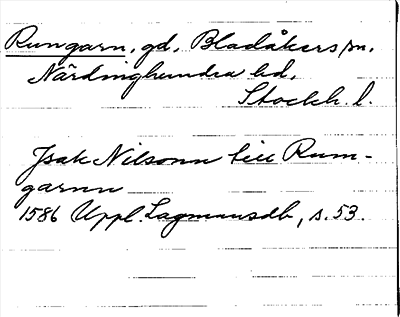 Rungarn, gd, Bladåkers sn,
Närdinghundra hd,
Stockh. l.
Isak Nilsonn till Rum-
garnn
1586 Uppl. Lagmansdb, s. 53.